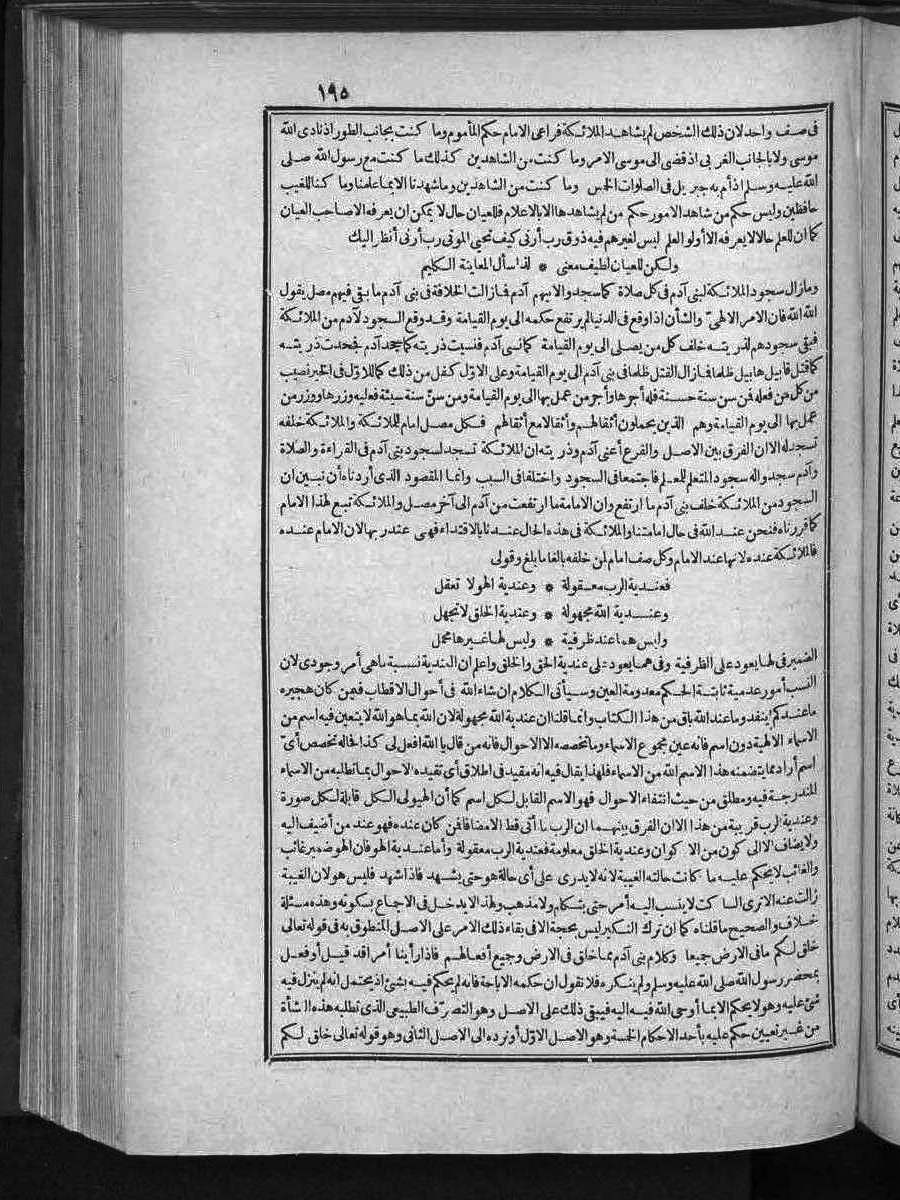 ١٩٥
فى صف واحد لان ذلك الشخص لم يشاهد الملائكة فراعى الامام حكم المأموم وما كنت بجانب الطور اذ نادى الله
موسى ولا بالجانب الغربى اذ قضى الى موسى الامر وما كنت من الشاهدين كذلك ما كنت مع رسول الله صلى
الله عليه وسلم اذ أم به جبريل فى الصلوات الخمس وما كنت من الشاهدين وما شهدنا الا بما علمنا وما كنا للغيب
حافظين وليس حكم من شاهد الامور حكم من لم يشاهدها الا بالاعلام فللعيان حال لا يمكن ان يعرفه الا صاحب العيان
كما ان للعلم حالا لا يعرفه الا أولو العلم ليس لغيرهم فيه ذوق رب أرنى كيف تحيى الموتى رب أرنى أنظر اليك
ولكن للعيان لطيف معنى * لذا سأل المعاينة الكليم
ومازال سجود الملائكة لبنى آدم فى كل صلاة كما سجدوا لابيهم آدم فما زالت الخلافة فى بنى آدم ما بقى فيهم مصل يقول
الله الله فان الامر الالهىّ والشأن اذا وقع فى الدنيا لم يرتفع حكمه الى يوم القيامة وقد وقع السجود لآدم من الملائكة
فبقى سجودهم لذريته خلف كل من يصلى الى يوم القيامة كما نسى آدم فنسيت ذريته كما جحد آدم فجحدت ذريته
كما قتل قابيل هابيل ظلما فما زال القتل ظلما فى بنى آدم الى يوم القيامة وعلى الاوّل كفل من ذلك كما للاوّل فى الخير نصيب
من كل من فعله فمن سن سنة حسنة فله أجرها وأجر من عمل بها الى يوم القيامة ومن سنّ سنة سيئة فعليه وزرها ووزر من
عمل بها الى يوم القيامة وهم الذين يحملون أثقالهم وأثقالا مع أثقالهم فكل مصل امام للملائكة والملائكة خلفه
تسجد له الا ان الفرق بين الاصل والفرع أعنى آدم وذريته ان الملائكة تسجد لسجود بنى آدم فى القراءة والصلاة
وآدم سجدوا له سجود المتعلم للمعلم فاجتمعا فى السجود واختلفا فى السبب وانما المقصود الذى أردناه أن نبين ان
السجود من الملائكة خلف بنى آدم ما ارتفع وان الامامة ما ارتفعت من آدم الى آخر مصل والملائكة تبع لهذا الامام
كما قررناه فنحن عند الله فى حال امامتنا والملائكة فى هذه الحال عندنا بالاقتداء فهى عند ربها لان الامام عنده
فالملائكة عنده لانها عند الامام وكل صف امام لمن خلفه بالغا ما بلغ وقولى
فعندية الرب معقولة * وعندية الهو لا تعقل
وعندية الله مجهولة * وعندية الخلق لا تجهل
وليس هما عند ظرفية * وليس لها غيرها محمل
الضمير فى لها يعود على الظرفية وفى هما يعود على عندية الحق والخلق واعلم ان العندية نسبة ما هى أمر وجودى لان
النسب أمور عدمية ثابتة الحكم معدومة العين وسيأتى الكلام ان شاء الله فى أحوال الاقطاب فيمن كان هجيره
ما عندكم ينفد وما عند الله باق من هذا الكتاب وانما قلنا ان عندية الله مجهولة لان الله بما هو الله لا يتعين فيه اسم من
الاسماء الالهية دون اسم فانه عين مجموع الاسماء وما تخصصه الا الاحوال فانه من قال يا الله افعل لى كذا فحاله تخصص أىّ
اسم أراد مما يتضمنه هذا الاسم الله من الاسماء فلهذا يقال فيه انه مقيد فى اطلاق أى تقيده الاحوال بما تطلبه من الاسماء
المندرجة فيه ومطلق من حيث انتفاء الاحوال فهو الاسم القابل لكل اسم كما أن الهيولى الكل قابلة لكل صورة
وعندية الرب قريبة من هذا الا ان الفرق بينهما ان الرب ما أتى قط الا مضافا فمن كان عنده فهو عند من أضيف اليه
ولا يضاف الا الى كون من الاكوان وعندية الخلق معلومة فعندية الرب معقولة وأما عندية الهو فان الهو ضمير غائب
والغائب لا يحكم عليه ما كانت حالته الغيبة لانه لا يدرى على أى حالة هو حتى يشهد فاذا شهد فليس هو لان الغيبة
زالت عنه الا ترى الساكت لا ينسب اليه أمر حتى يتكلم ولا مذهب ولهذا لا يدخل فى الاجماع بسكوته وهذه مسئلة
خلاف والصحيح ما قلناه كما ان ترك النكير ليس بحجة الا فى بقاء ذلك الامر على الاصل المنطوق به فى قوله تعالى
خلق لكم ما فى الارض جميعا وكلام بنى آدم مما خلق فى الارض وجميع أفعالهم فاذا رأينا أمرا قد قيل أو فعل
بمحضر رسول الله صلى الله عليه وسلم ولم ينكره فلا نقول ان حكمه الاباحة فانه لم يحكم فيه بشئ اذ يحتمل انه لم ينزل فيه
شئ عليه وهو لا يحكم الا بما أوحى الله فيه اليه فيبقى ذلك على الاصل وهو التصرّف الطبيعى الذى تطلبه هذه النشأة
من غير تعيين حكم عليه بأحد الاحكام الخمسة وهو الاصل الاوّل أو نرده الى الاصل الثانى وهو قوله تعالى خلق لكم